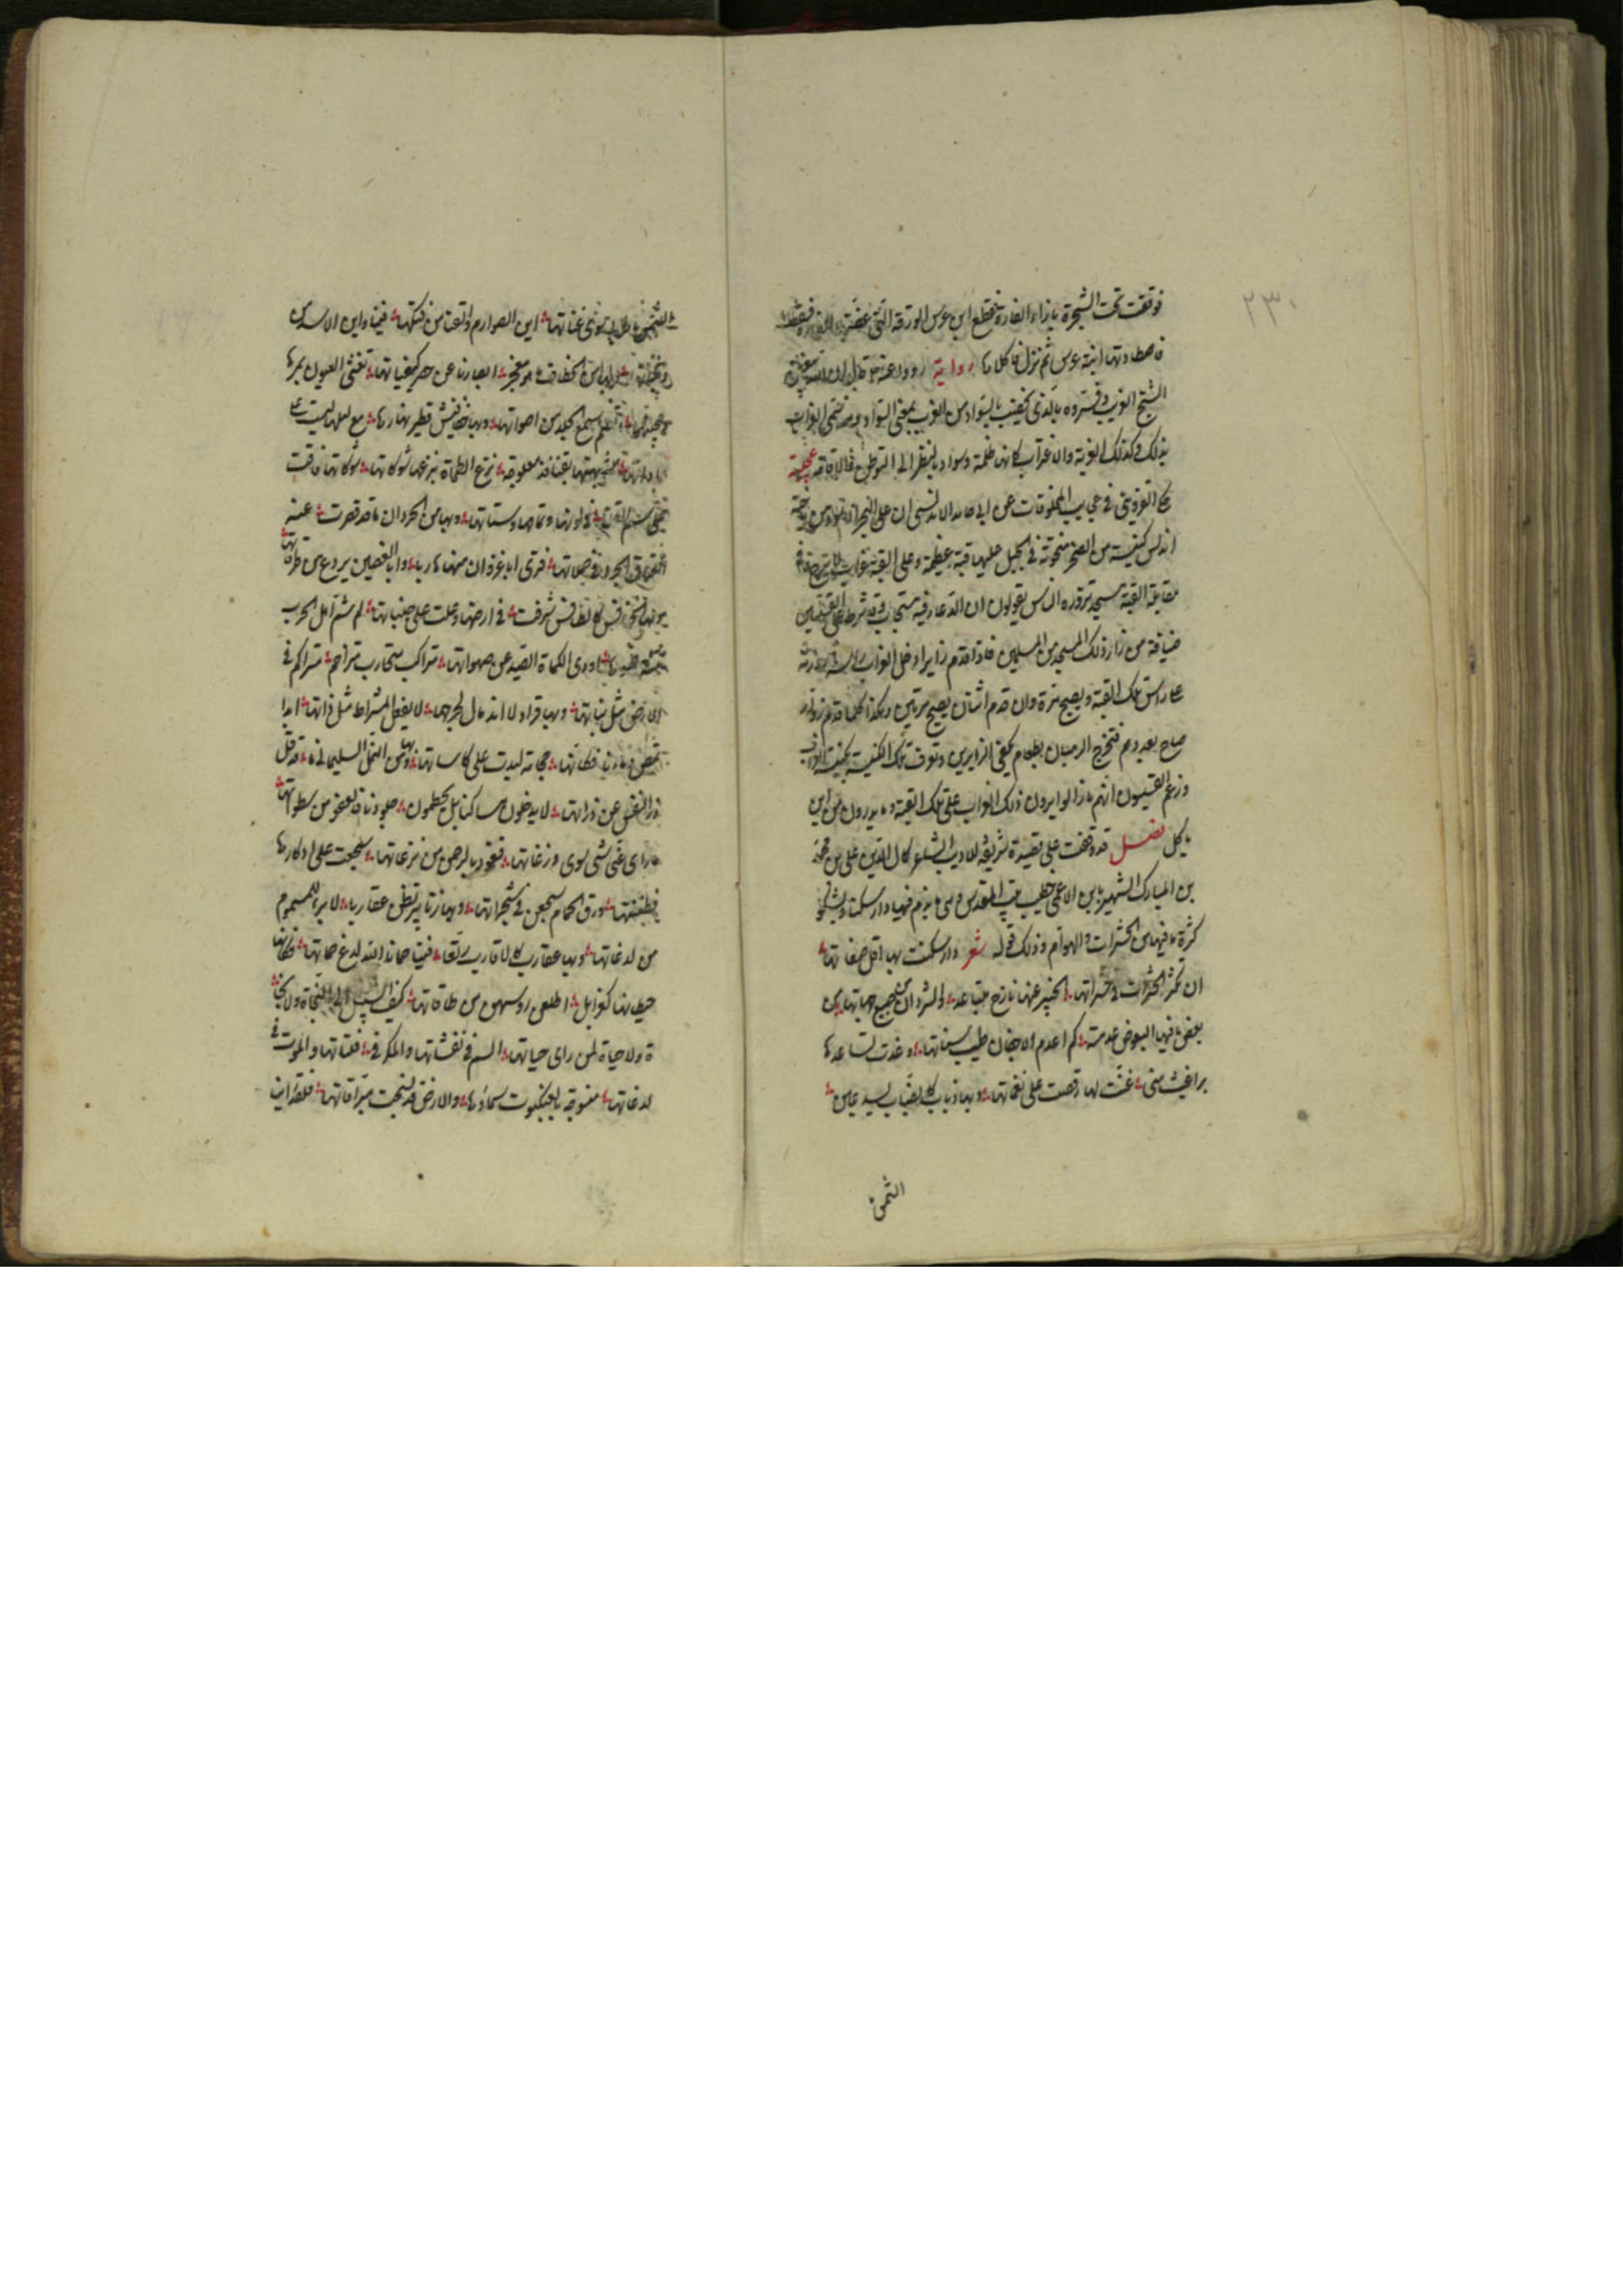 ٢٣٠
فوقفت تحت الشجرة بازاء الفارة فقطع ابن عرس الورقة التى عضتها الفارة فسقطت
فاصطادتها ابنة عرس ثم نزل فاكلاها رواية رووا عنه
الشيخ الغربيب وفسروه بالذى يخضب بالسواد من الغريب بمعنى السواد
بذلك وكذلك الغربة والاغتراب كانها ظلمة وسواد بالنظر الى التوطن عجيبة
القزوينى فى عجايب المخلوقات عن ابى حامد الاندلسى ان على البحر الاسود من ناحية
اندلس كنيسة من الصخر منحوتة فى الجبل عليها قبة عظيمة وعلى القبة غراب
مقابلة القبة مسجد يزوره الناس يقولون ان الدعا فيه مستجاب وقد شرط على القسيسين
ضيافة من زار ذلك المسجد من المسلمين فاذا قدم زاير ادخل الغراب راسه
تلك القبة ويصيح مرة وان قدم اثنان يصيح مرتين وهكذا كلما قدم زوار
صاح بعددهم فتخرج الرهبان بطعام يكفى الزايرين وتعرف تلك الكنيسة بكنيسة الغراب
وزعم القسيسون انهم ما زالوا يرون ذلك الغراب على تلك القبة وما يدرون من اين
ياكل فصل قد وقفت على قصيدة شريفة للاديب الشاعر كمال الدين على بن محمد
بن المبارك الشهير بابن الاعمى خطيب بيت المقدس وهى ما يذم فيها دار سكنه ويشكو
كثرة ما فيها من الحشرات والهوام وذلك قوله شعر دار سكنت بها اقل صفاتها
ان تكثر الحشرات فى حجراتها الخير عنها نازح متباعد والشر دان من جميع جهاتها من
بعض ما فيها البعوض عدمته كم اعدم الاجفان طيب سناتها وغدت تساعدها
براغيث متى غنت لها رقصت على نغماتها وبها ذباب كالضباب يسد عين
الشمس
الشمس ما طربى سوى غناتها اين الصوارم والقنا من فتكها فينا واين الاسد من
وثباتها وبها من الخطاف ما هو معجز ابصارنا عن حصر كيفياتها تغشى العيون بمرها
ومجيئها وتصم سمع الخلد من اصواتها وبها خفافيش تطير نهارها مع ليلها ليست على
عاداتها شبهتها بقنافذ مطبوخة نزع الطهاة بنزعها شوكاتها شوكاتها فاقت
على سمر القنا فى لونها وتمامها وسناتها وبها من الجرذان ما قد قصرت عنه
العتاق الجرد فى حملاتها فترى ابا غزوان منها هاربا وابا الحصين يروع من طرقاتها
وبها خنافس كالطنافس فرشت فى ارضها وعلت على جنباتها لو شم اهل الحرب
منتن فسوها اردى الكماة الصيد عن صهواتها متراكب متحارب متزاحم متراكم فى
الارض مثل نباتها وبها قراد لا اندمال لجرحها لا يفعل المشراط مثل اذاتها ابدا
تمص دماءنا فكانها حجامة لبدت على كاساتها وبها من النمل السليمانى ما قد قل
ذر الشمس عن ذراتها لا يدخلون مساكنا بل يحطمون جلودنا فالعفو من سطواتها
ما راى عينى شى سوى وزغاتها فتعوذوا بالرحمن من نزغاتها سجعت على اوكارها
فظننتها ورق الحمام سجعن فى شجراتها وبها زنابير تظن عقاربا لا برء للمسموم
من لدغاتها وبها عقارب كالاقارب رتعا فينا حمانا الله لدغ حماتها فكانها
حيطانها كغرابل اطلعن روسهن من طاقاتها كيف السبيل الى النجاة ولا نجا
ة ولا حياة لمن راى حياتها السم فى نفثاتها والمكر فى فلتاتها والموت فى
لدغاتها منسوجة بالعنكبوت سماؤها والارض قد نسجت ببراقاتها فلقد اين